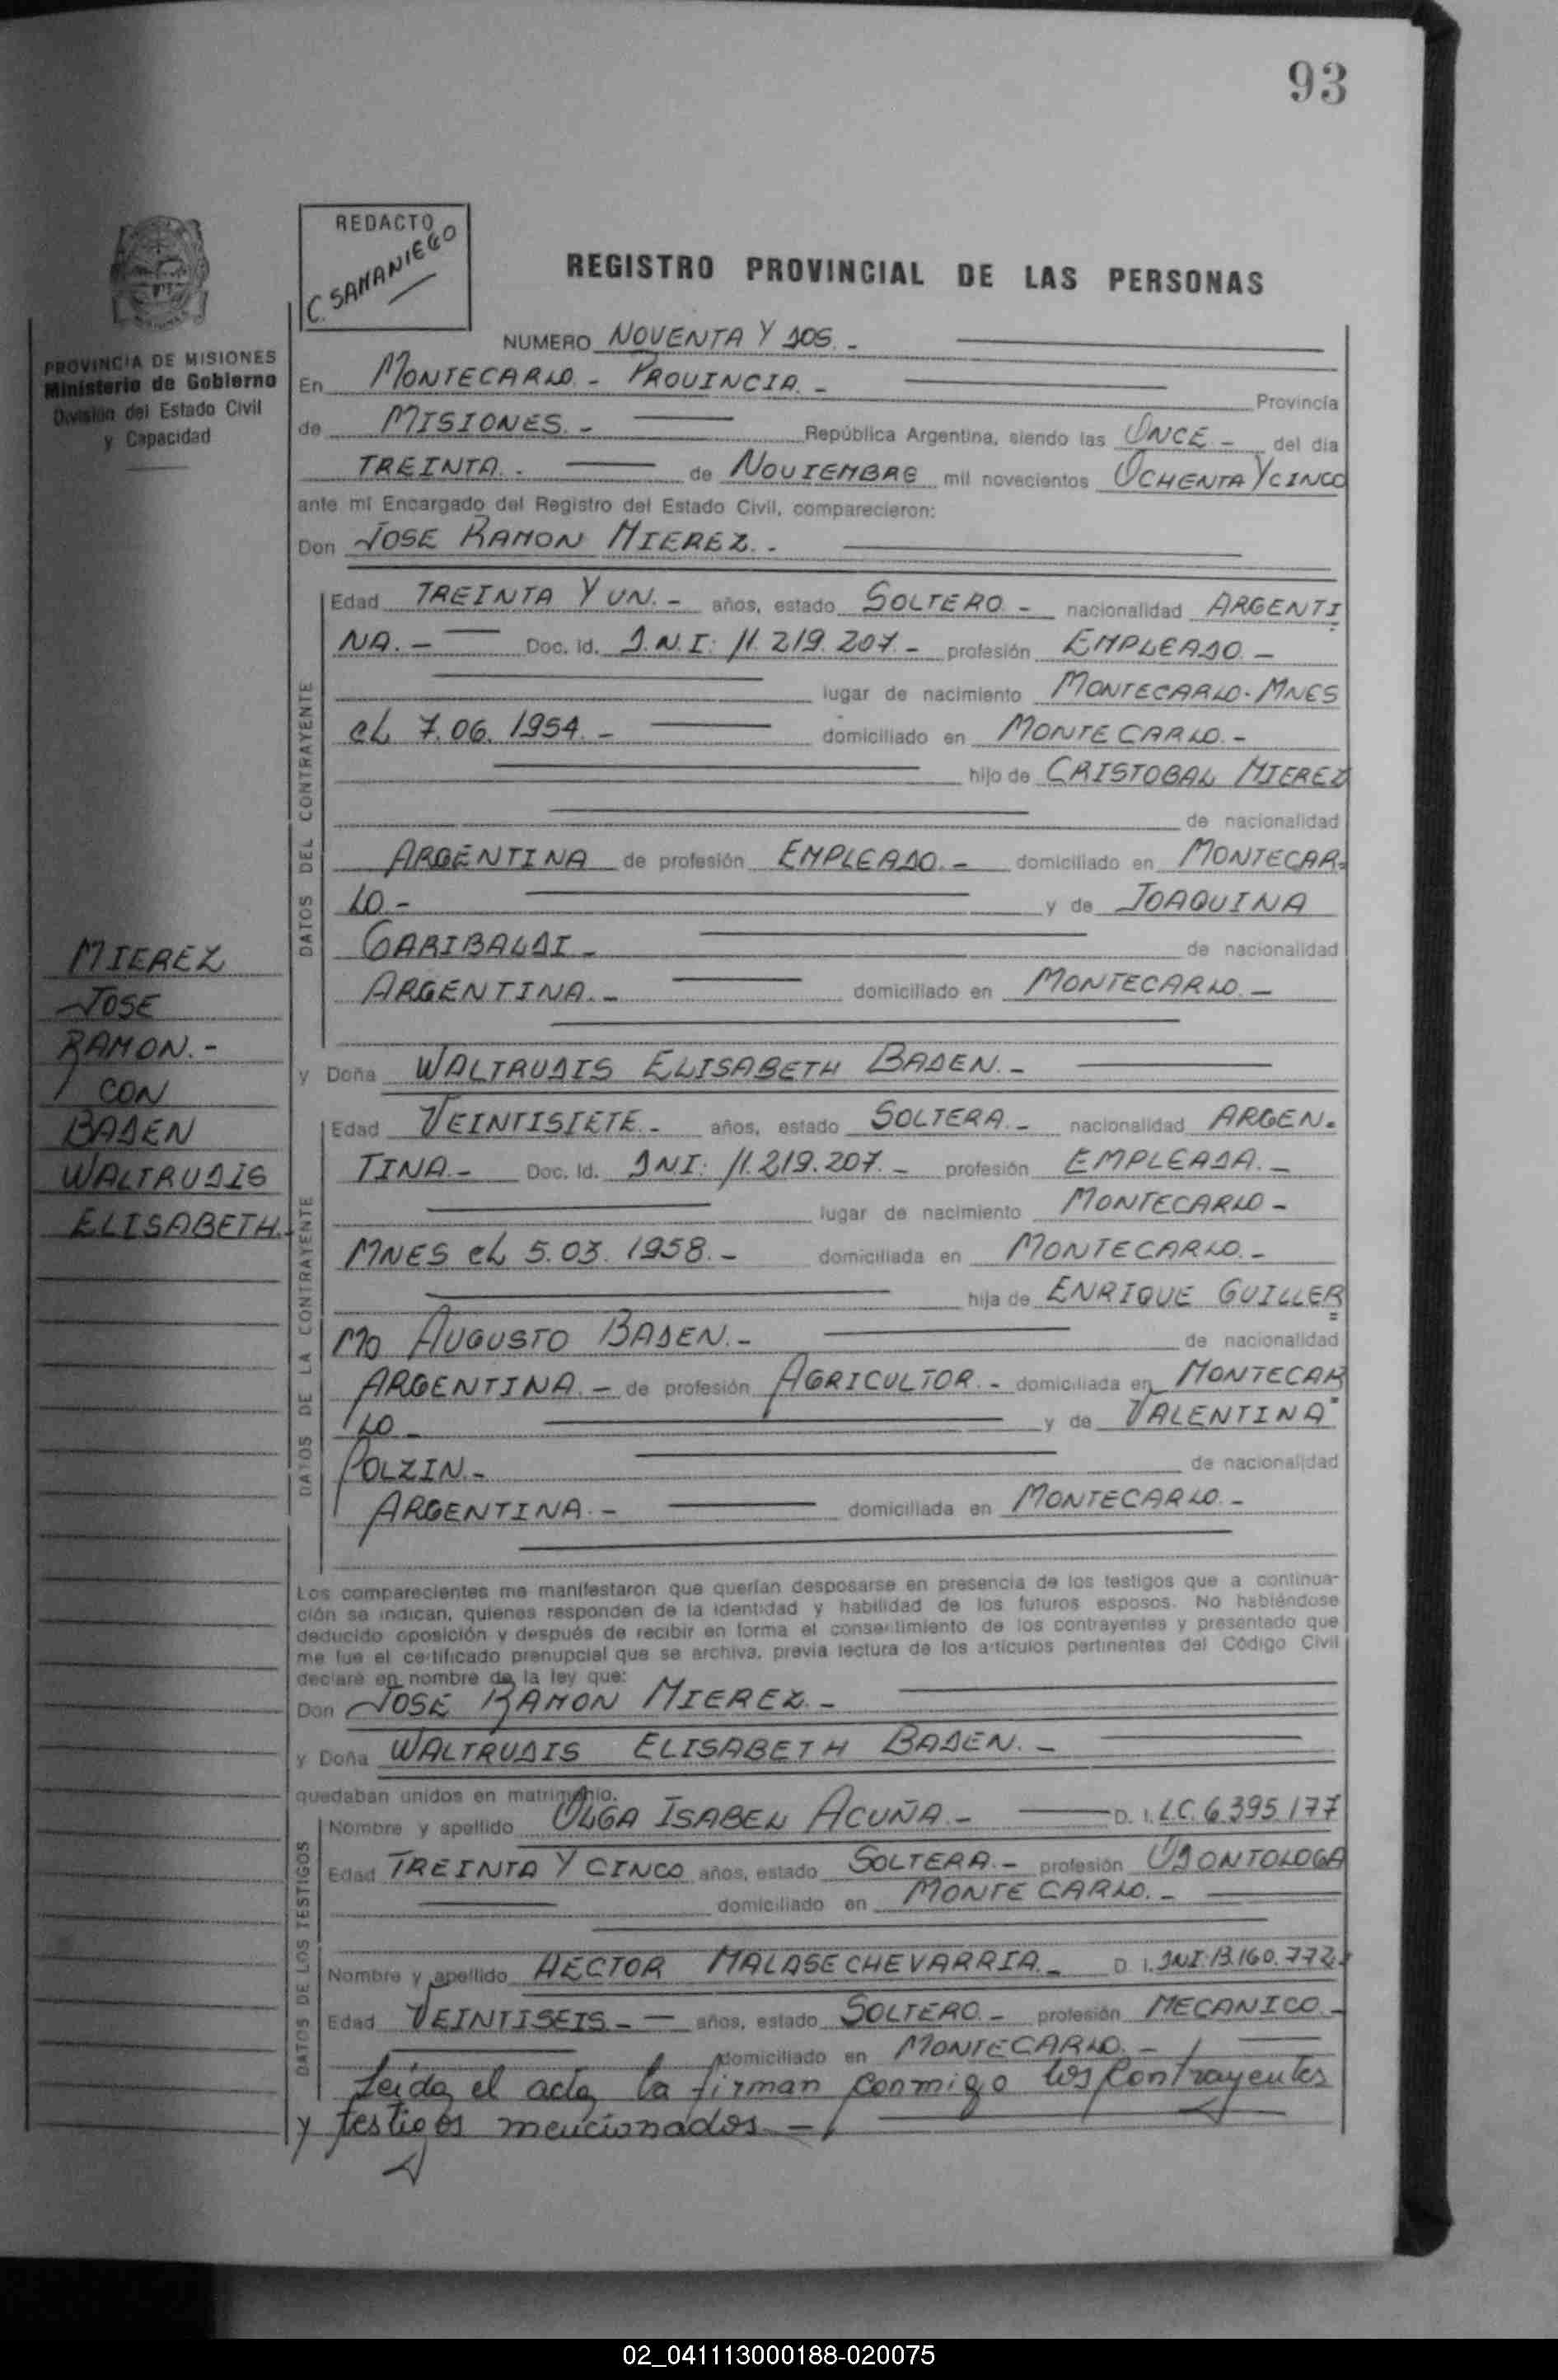 93
REDACTO
C. SAMANIEGO
REGISTRO PROVINCIAL DE LAS PERSONAS
PROVINCIA DE MISIONES
Ministerio de Gobierno
División del Estado Civil
y Capacidad
NUMERO NOVENTA Y DOS. -
En MONTECARLO. - PROVINCIA. - Provincia
de MISIONES. - República Argentina, siendo las ONCE - del día
TREINTA. - de NOVIEMBRE mil novecientos OCHENTA Y CINCO
ante mí Encargado del Registro del Estado Civil, comparecieron:
Don JOSE RAMON MIEREZ. -
DATOS DEL CONTRAYENTE
Edad TREINTA Y UN. - años, estado SOLTERO - nacionalidad ARGENTI
NA. - Doc. id. D.N.I: 11.219.207. - profesión EMPLEADO. -
lugar de nacimiento MONTECARLO - MNES
EL 7.06.1954. - domiciliado en MONTECARLO. -
hijo de CRISTOBAL MIEREZ
de nacionalidad
ARGENTINA de profesión EMPLEADO. - domiciliado en MONTECAR-
LO - y de JOAQUINA
GARIBALDI - de nacionalidad
ARGENTINA. - domiciliado en MONTECARLO. -
MIEREZ
JOSE
RAMON. -
CON
BADEN
WALTRUDIS
ELISABETH. -
y Doña WALTRUDIS ELISABETH BADEN. -
DATOS DE LA CONTRAYENTE
Edad VEINTISIETE. - años, estado SOLTERA. - nacionalidad ARGEN-
TINA. - Doc. Id. DNI: 11.219.207. - profesión EMPLEADA. -
lugar de nacimiento MONTECARLO -
MNES EL 5.03.1958. - domiciliada en MONTECARLO. -
hija de ENRIQUE GUILLER
MO AUGUSTO BADEN. - de nacionalidad
ARGENTINA. - de profesión AGRICULTOR. - domiciliada en MONTECAR
LO - y de VALENTINA
POLZIN. - de nacionalidad
ARGENTINA. - domiciliada en MONTECARLO. -
Los comparecientes me manifestaron que querían desposarse en presencia de los testigos que a continua-
ción se indican, quienes responden de la identidad y habilidad de los futuros esposos. No habiéndose
deducido oposición y después de recibir en forma el consentimiento de los contrayentes y presentado que
me fue el certificado prenupcial que se archiva, previa lectura de los artículos pertinentes del Código Civil
declaré en nombre de la ley que:
Don JOSE RAMON MIEREZ. -
y Doña WALTRUDIS ELISABETH BADEN. -
quedaban unidos en matrimonio.
DATOS DE LOS TESTIGOS
Nombre y apellido OLGA ISABEL ACUÑA - D. I. L.C. 6.395.177
Edad TREINTA Y CINCO años, estado SOLTERA. - profesión ODONTOLOGA
domiciliado en MONTECARLO. -
Nombre y apellido HECTOR MALASECHEVARRIA. - D. I. DNI: 13.160.772
Edad VEINTISEIS - años, estado SOLTERO - profesión MECANICO -
domiciliado en MONTECARLO. -
Leida el acta la firman conmigo los contrayentes
y testigos mencionados. -
02_041113000188-020075